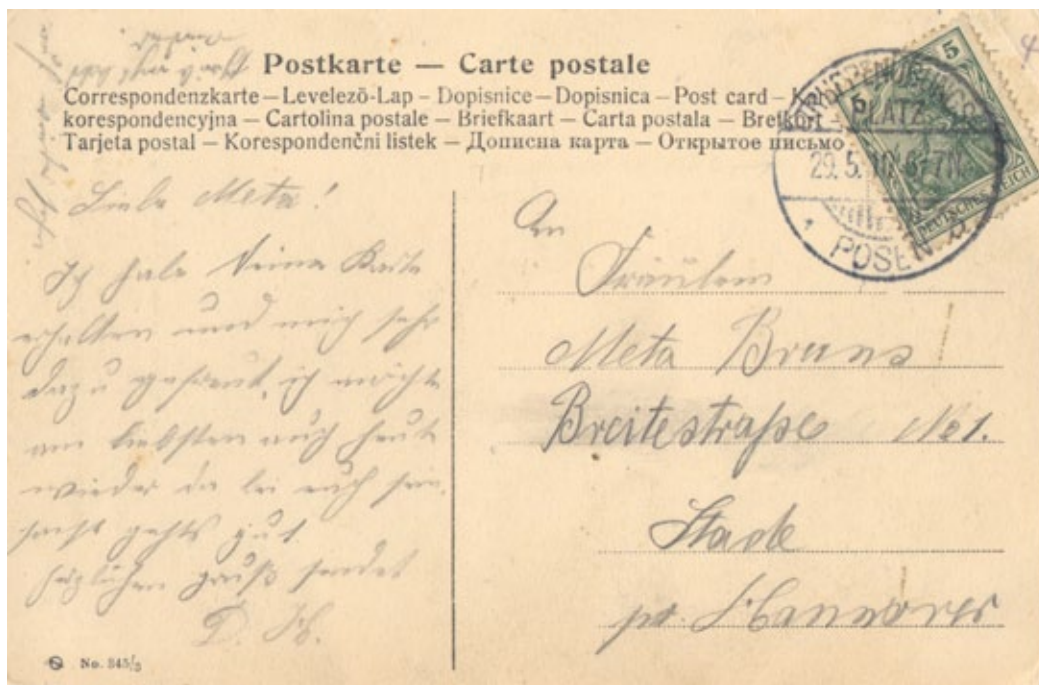 Postkarte — Carte postale
Correspondenzkarte — Levelező-Lap - Dopisnice — Dopisnica — Post card —
korespondencyjna — Cartolina postale — Briefkaart — Carta postala — Brefkort —
Tarjeta postal — Korespondenčni listek — Дописна карта — Открытое письмо
PLATZ
29.5.10. 6-7N.
POSEN
5
DEUTSCHES REICH
Liebe Meta!
Ich habe Deine Karte
erhalten und mich sehr
dazu gefreut, ich möchte
am liebsten auch heute
wieder da bei euch sein,
sonst gehts gut.
herzlichen gruß sendet
D. H.
An
Fräulein
Meta Bruns
Breitestraße No 1.
Stade
No. 345/3